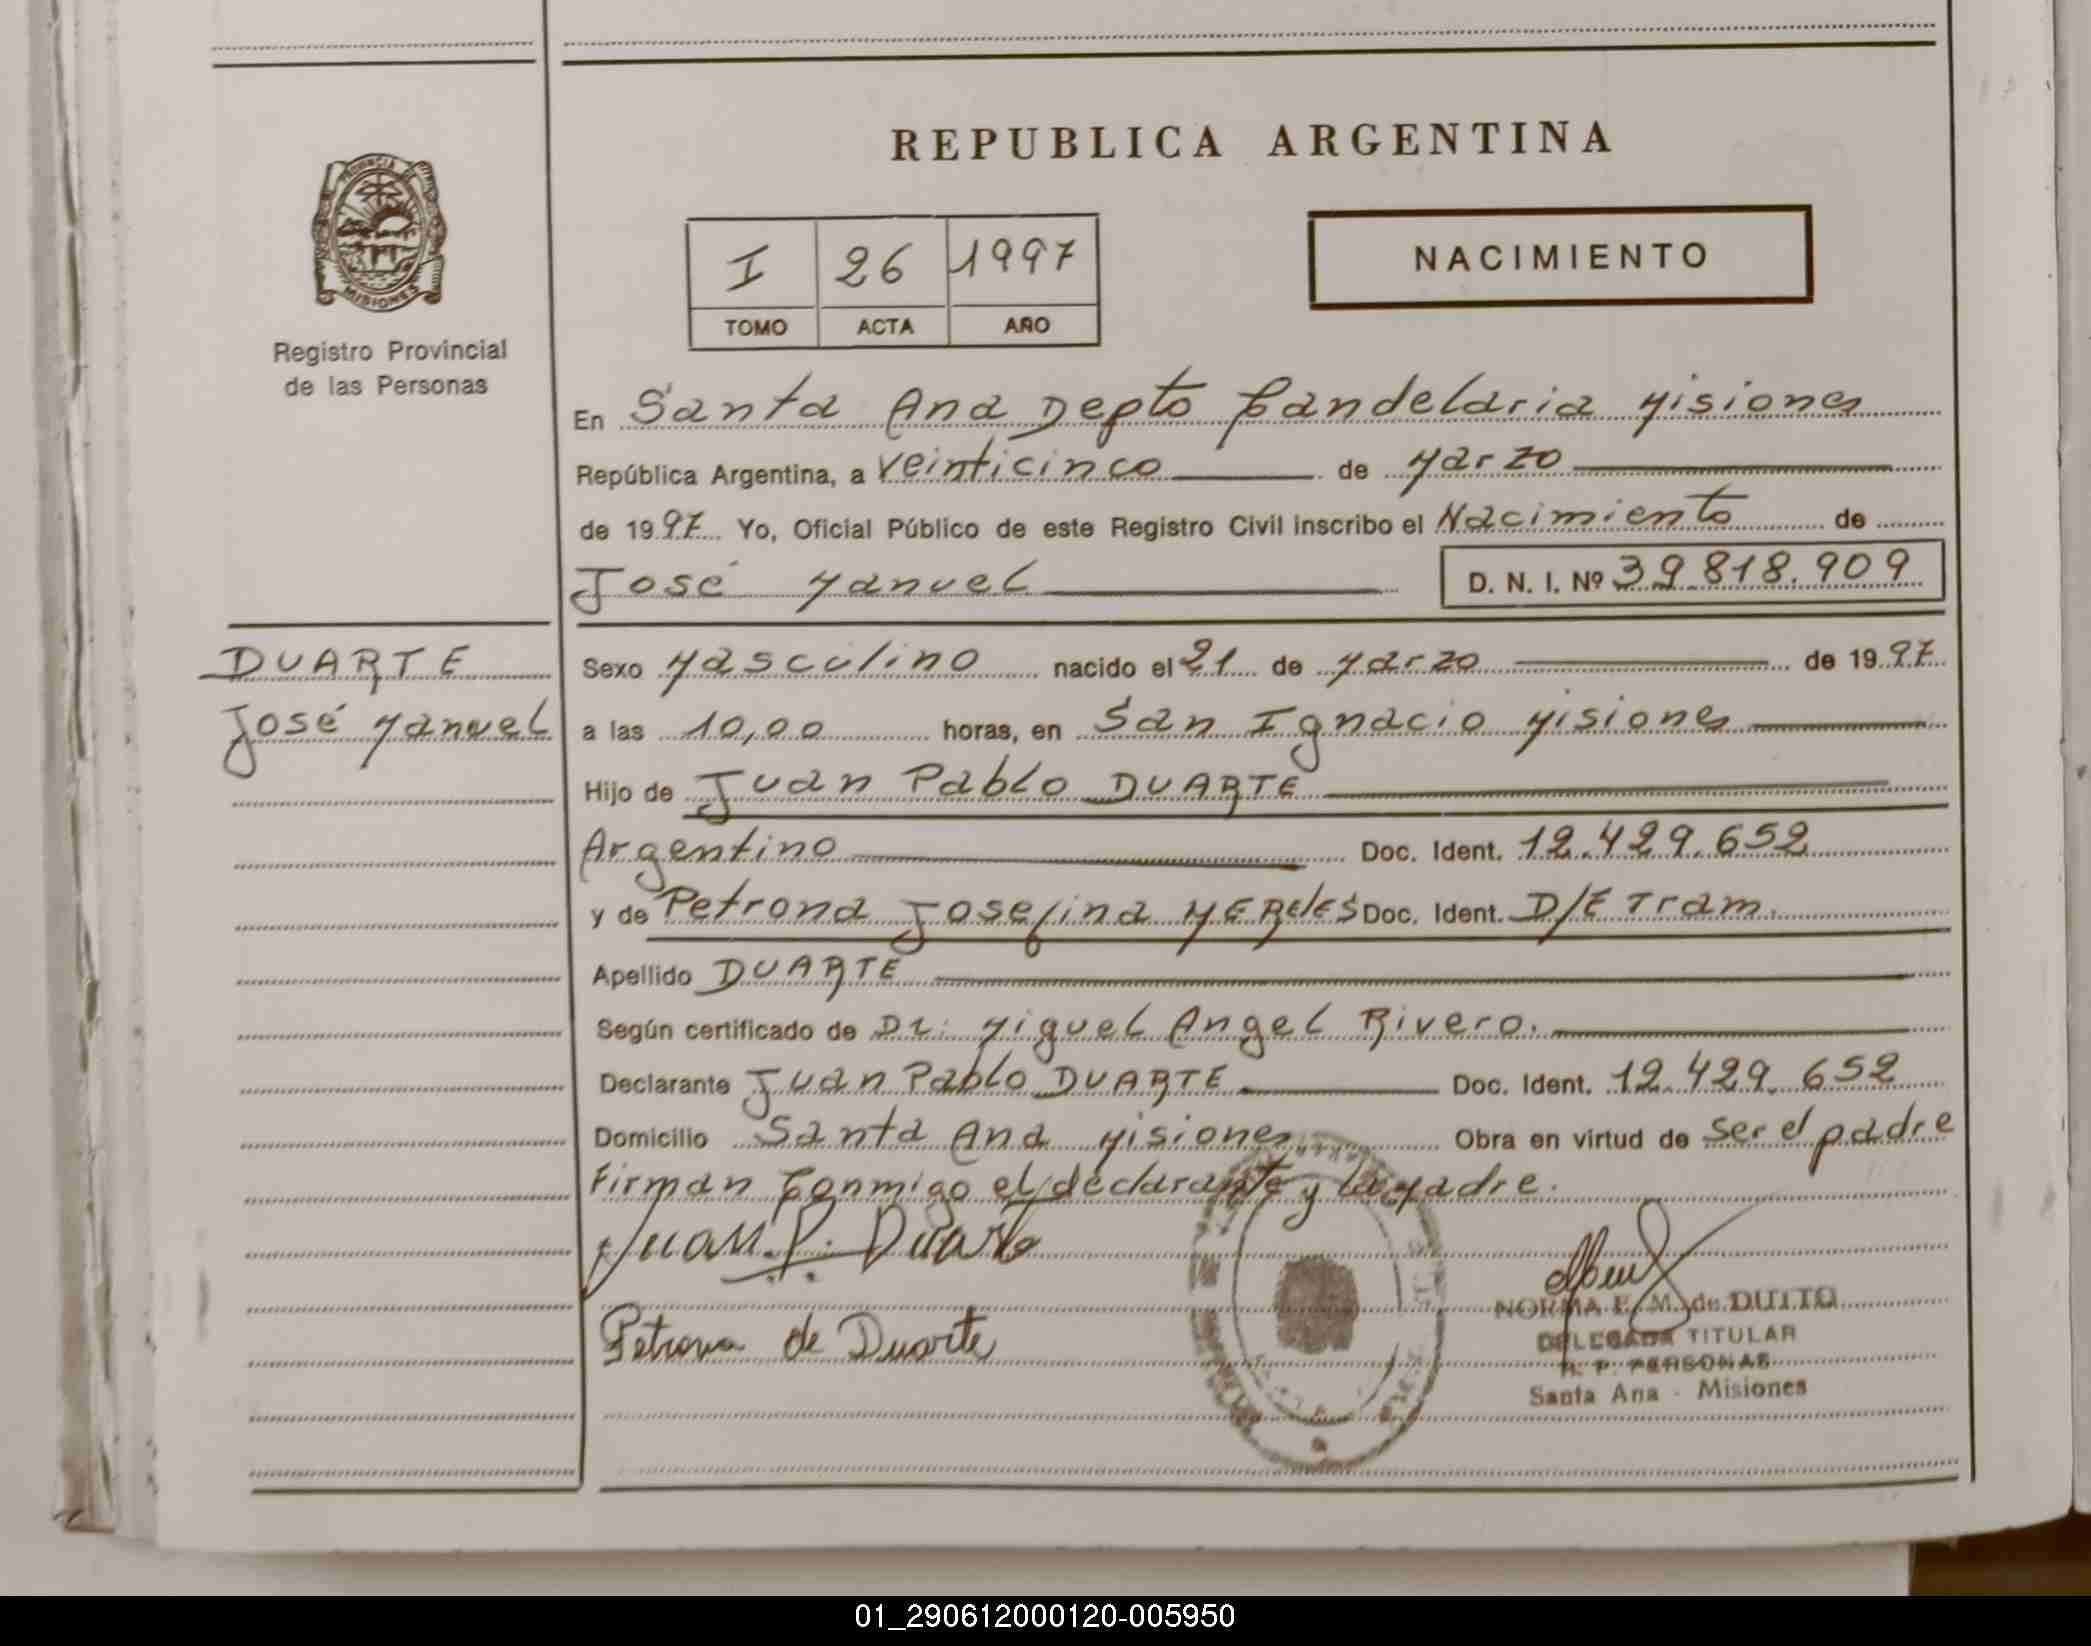 REPUBLICA ARGENTINA
PROVINCIA DE
MISIONES
Registro Provincial
de las Personas
I 26 1997
TOMO ACTA AÑO
NACIMIENTO
En Santa Ana Depto Candelaria Misiones
República Argentina, a veinticinco de Marzo
de 1997 Yo, Oficial Público de este Registro Civil inscribo el Nacimiento de
José Manuel D. N. I. Nº 39.818.909
DUARTE
José Manuel
Sexo Masculino nacido el 21 de Marzo de 1997
a las 10,00 horas, en San Ignacio Misiones
Hijo de Juan Pablo DUARTE
Argentino Doc. Ident. 12.429.652
y de Petrona Josefina MEReles Doc. Ident. D/E Tram.
Apellido DUARTE
Según certificado de Dr: Miguel Angel Rivero.
Declarante Juan Pablo DUARTE Doc. Ident. 12.429.652
Domicilio Santa Ana Misiones Obra en virtud de ser el padre
Firman Conmigo el declarante y la madre.
Juan P. Duarte
Petrona de Duarte
NORMA E. M. de DUITO
DELEGADA TITULAR
R. P. PERSONAS
Santa Ana - Misiones
01_290612000120-005950